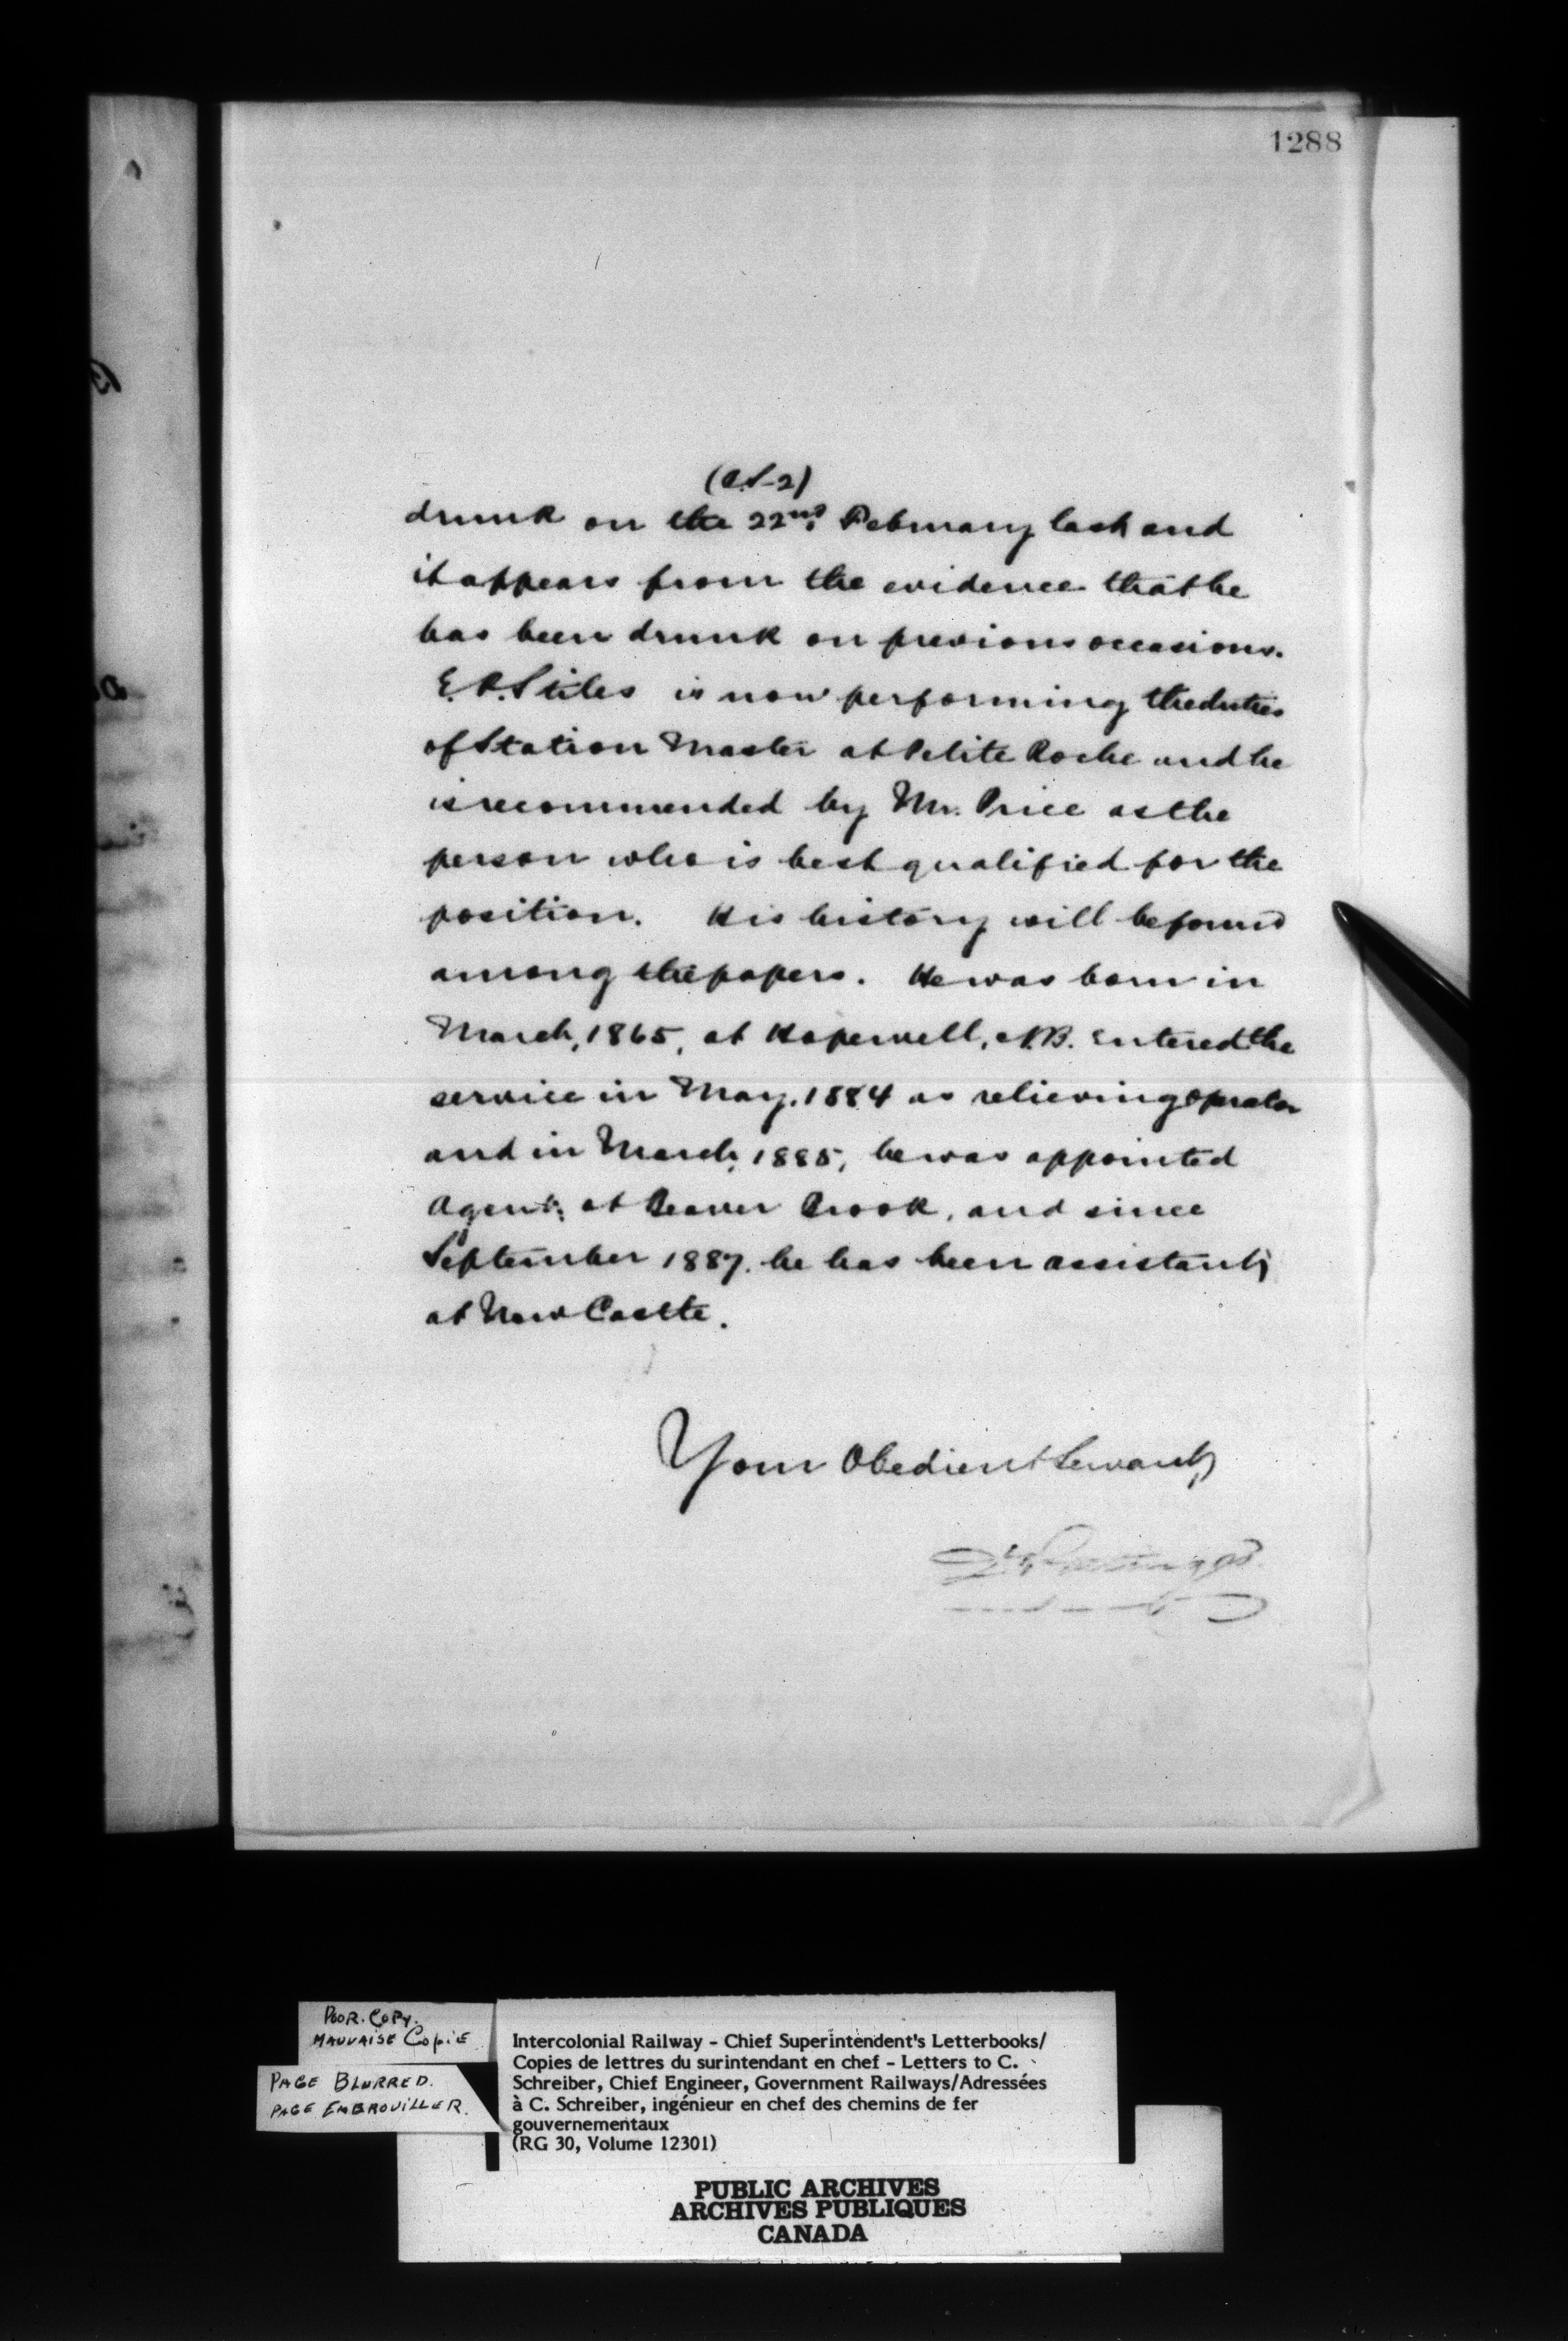 1288
(C.S-2)
drunk on the 22nd. February last and
it appears from the evidence that he
has been drunk on previous occasions.
E. R. Stiles is now performing the duties
of Station Master at Petite Roche and he
is recommended by Mr. Price as the
person who is best qualified for the
position. His history will be found
among the papers. He was born in
March, 1865, at Hopewell, N.B. entered the
service in May, 1884 as relieving operator
and in March, 1885, he was appointed
Agent, at Beaver Brook, and since
September 1887, he has been assistant,
at New Castle.
Your Obedient Servant,
POOR. COPY.
MAUVAISE COPIE
PAGE BLURRED.
PAGE EMBROUILLER.
Intercolonial Railway - Chief Superintendent's Letterbooks/
Copies de lettres du surintendant en chef - Letters to C.
Schreiber, Chief Engineer, Government Railways/Adressées
à C. Schreiber, ingénieur en chef des chemins de fer
gouvernementaux
(RG 30, Volume 12301)
PUBLIC ARCHIVES
ARCHIVES PUBLIQUES
CANADA